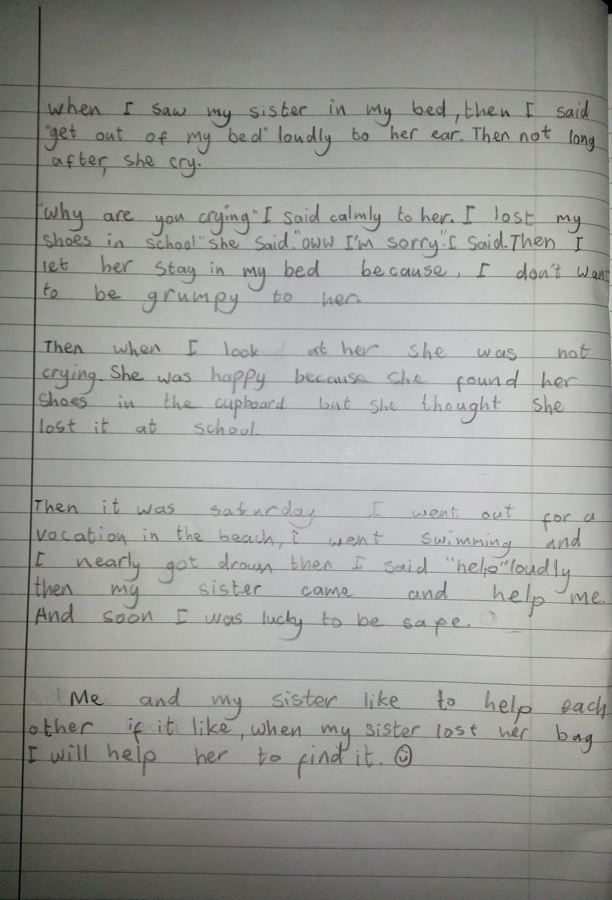 when I saw my sister in my bed, then I said
"get out of my bed" loudly to her ear. Then not long
after, she cry.
"why are you crying" I said calmly to her. I lost my
shoes in school" she said. "oww I'm sorry" I said. Then I
let her stay in my bed because, I don't want
to be grumpy to her.
Then when I look at her she was not
crying. She was happy because she found her
shoes in the cupboard but she thought she
lost it at school.
Then it was saturday I went out for a
vocation in the beach, i went swimming and
I nearly got drown then I said "help" loudly
then my sister came and help me.
And soon I was lucky to be sape.
Me and my sister like to help each
other if it like, when my sister lost her bag
I will help her to find it. ☺